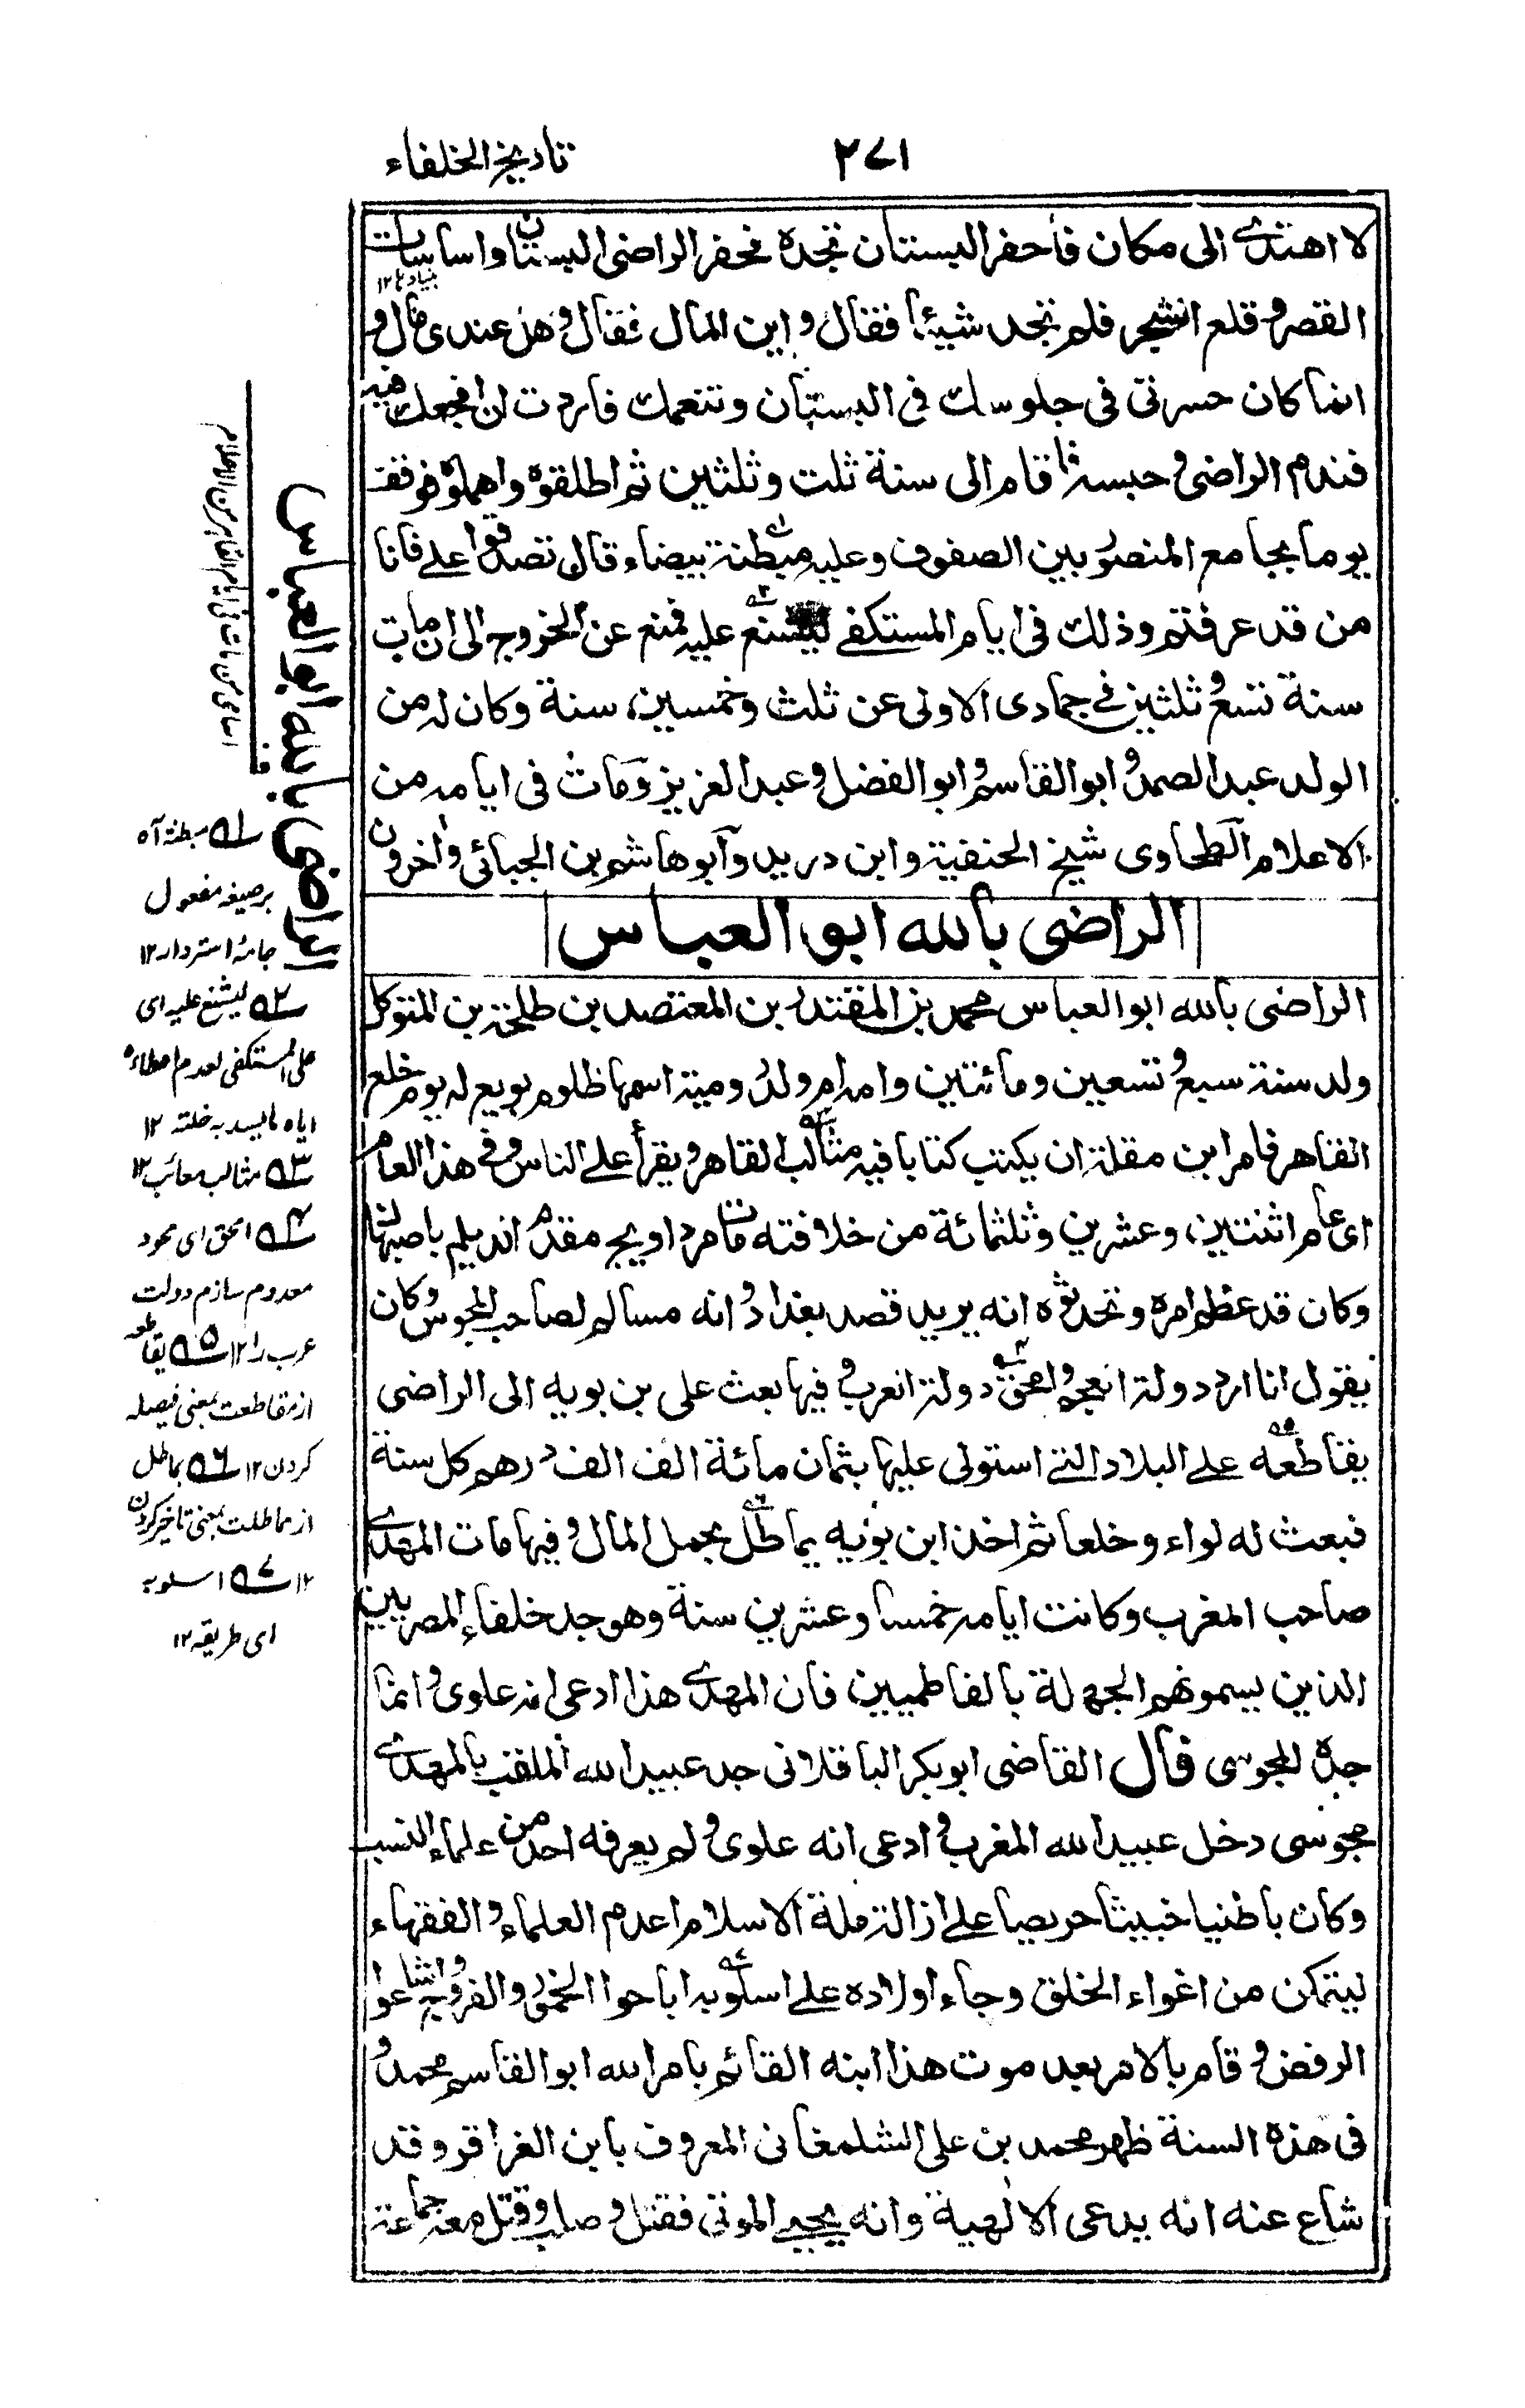 ٢٧١
تاريخ الخلفاء
لا اهتدى الى مكان فاحفر البستان تجده فحفر الراضى البستان واساسات
بنیادها ١٢
القصر و قلع الشجر فلم يجد شيئا فقال و اين المال فقال و هل عندى مال و
انما كان حسرتى فى جلوسك فى البستان وتتنعمك فاردت ان افجعك فيه
فندم الراضى و حبسه فاقام الى سنة ثلث وثلثين ثم اطلقوه واهملوه فوقف
يوما بجامع المنصور بين الصفوف وعليه مبطنة بيضاء وقال تصدقوا على فانا
من قد عرفتم وذلك فى ايام المستكفى ليشنع عليه فمنع عن الخروج الى ان مات
سنة تسع و ثلثين فى جمادى الاولى عن ثلث وخمسين سنة وكان له من
الولد عبد الصمد و ابو القاسم و ابو الفضل و عبد العزيز ومات فى ايامه من
الاعلام الطحاوى شيخ الحنفية وابن دريد وابو هاشم بن الجبائى و اخرون
الراضى بالله ابو العباس
الراضى بالله ابو العباس محمد بن المقتدر بن المعتضد بن طلحة بن المتوكل
ولد سنة سبع و تسعين ومائتين وامه ام ولد رومية اسمها ظلوم بويع له يوم خلع
القاهر فامر ابن مقلة ان يكتب كتابا فيه مثالب القاهر و يقرأ على الناس و فى هذا العام
اى عام اثنتين وعشرين وثلثمائة من خلافته مات مرداويج مقدم الديلم باصبهان
وكان قد عظم امره وتحدثوه انه يريد قصد بغداد و انه مسالم لصاحب المجوس و كان
يقول انا ارد دولة العجم و امحق دولة العرب و فيها بعث على بن بويه الى الراضى
يقاطعه على البلاد التى استولى عليها بثمان مائة الف الف درهم كل سنة
فبعث له لواء و خلعا ثم اخذ ابن بويه يماطل بحمل المال و فيها مات المهدى
صاحب المغرب وكانت ايامه خمسا وعشرين سنة وهو جد خلفاء المصريين
الذين يسمونهم الجهلة بالفاطميين فان المهدى هذا ادعى انه علوى و انما
جده المجوسى قال القاضى ابو بكر الباقلانى جد عبيد الله الملقب بالمهدى
مجوسى دخل عبيد الله المغرب و ادعى انه علوى و لم يعرفه احد من علماء النسب
وكان باطنيا خبيثا حريصا على ازالة ملة الاسلام اعدم العلماء و الفقهاء
ليتمكن من اغواء الخلق وجاء اولاده على اسلوبه اباحوا الخمور و الفروج و اشاعوا
الرفض و قام بالامر بعد موت هذا ابنه القائم بامر الله ابو القاسم محمد و
فى هذه السنة ظهر محمد بن على الشلمغانى المعروف بابن الغراقر وقد
شاع عنه انه يدعى الالهية وانه يحيى الموتى فقتل و صلب و قتل معه جماعة
الراضى بالله ابو العباس
١ مبطنة آه
بر صیغه مفعول
جامۀ استردار ١٢
٢ لیشنع علیه ای
علی المستکفی لعدم اعطاءه
ایاه مایسد به خلته ١٢
٣ مثالب معائب ١٢
٤ امحق ای محود
معدوم سازم دولت
عرب را ١٢ ٥ یقاطعه
از مقاطعت بمعنی فیصله
کردن ١٢ ٦ یماطل
از مماطلت بمعنی تاخیر کردن
١٢ ٧ اسلوبه
ای طریقه ١٢